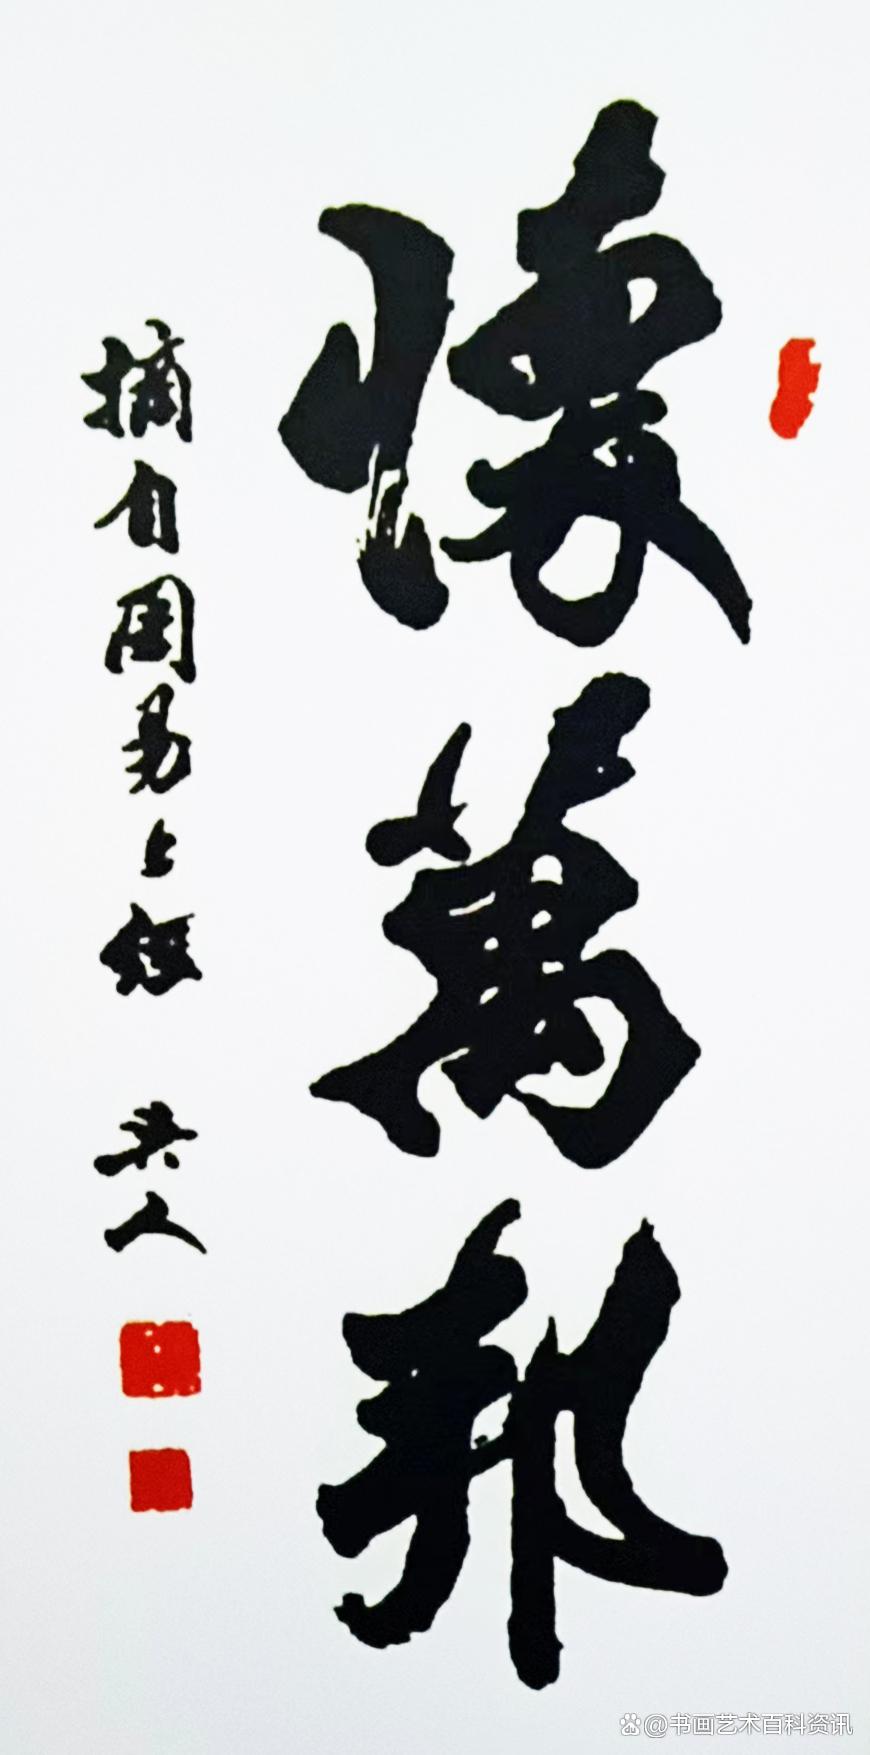 懷萬邦
摘自周易上經
奕人
@书画艺术百科资讯